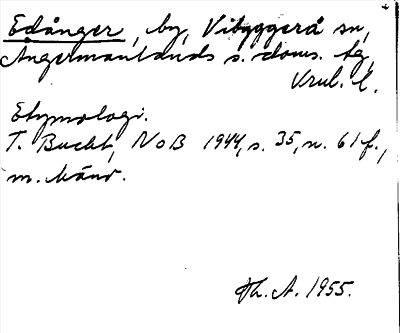 Edånger, by, Vibyggerå sn,
Ångermanlands s. doms. tg,
Vnrl. l.
Etymologi.
T. Bucht, NoB 1944, s. 35, n. 61 f.,
m. hänv.
Th. A. 1955.